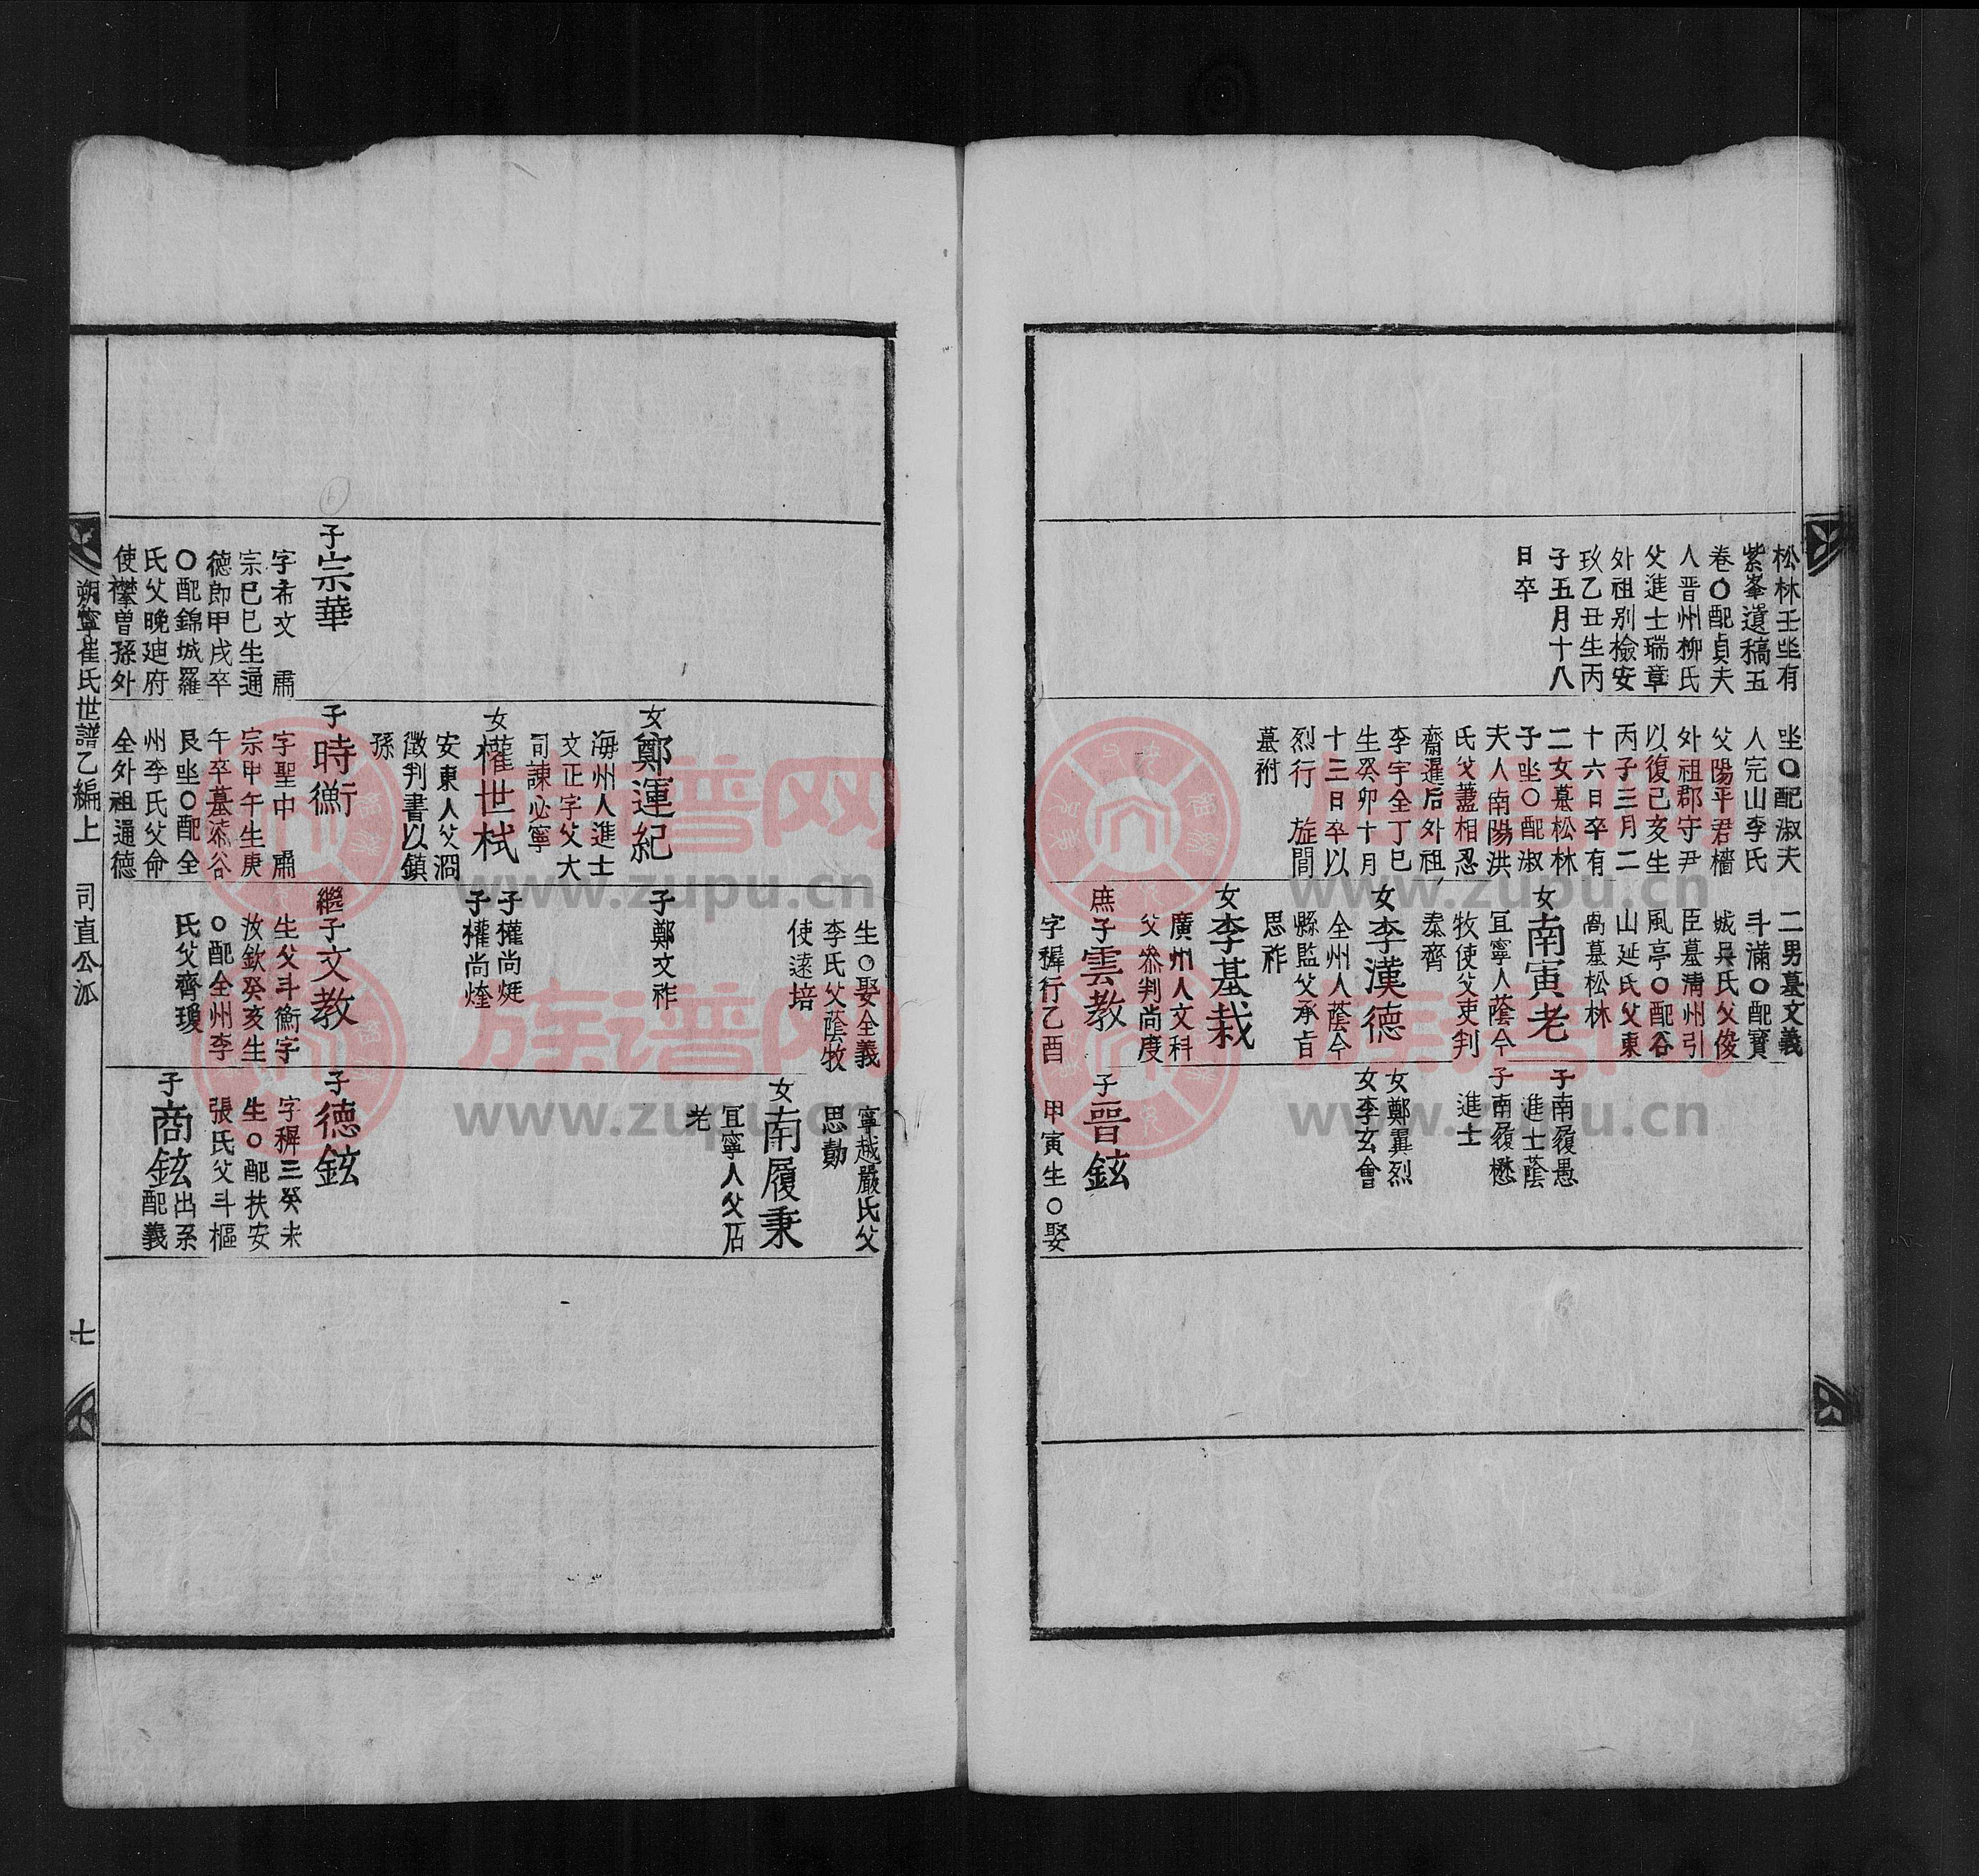 松林壬坐有
紫峯遺稿五
卷〇配貞夫
人晋州柳氏
父進士瑞章
外祖别檢安
玖乙丑生丙
子五月十八
日卒
坐〇配淑夫
人完山李氏
父陽平君檣
外祖郡守尹
以復己亥生
丙子三月二
十六日卒有
二女墓松林
子坐〇配淑
夫人南陽洪
氏父蓋相忍
齋暹后外祖
李宇全丁巳
生癸卯十月
十三日卒以
烈行 旌閭
墓祔
二男墓文義
斗滿〇配寳
城吳氏父俊
臣墓清州引
風亭〇配谷
山延氏父東
卨墓松林
女南寅老
宜寧人蔭今
牧使父吏判
泰齊
女李漢德
全州人蔭今
縣監父承旨
思祚
女李基栽
廣州人文科
父叅判尚度
庶子雲教
字穉行乙酉
子南履愚
進士蔭
子南履懋
進士
女鄭翼烈
女李玄會
子晋鉉
甲寅生〇娶
子宗華
字希文 肅
宗巳巳生通
德郎甲戌卒
〇配錦城羅
氏父晚廸府
使襸曾孫外
女鄭運紀
海州人進士
文正字父大
司諫必寧
女權世栻
安東人父泂
徵判書以鎮
孫
子時衡
字聖中 肅
宗甲午生庚
午卒墓漆谷
艮坐〇配全
州李氏父命
全外祖通德
生〇娶全義
李氏父蔭牧
使遠培
子鄭文祚
子權尚烶
子權尚煃
繼子文教
生父斗衡字
汝欽癸亥生
〇配全州李
氏父齊瓊
寧越嚴氏父
思勳
女南履秉
宜寧人父店
老
子德鉉
字穉三癸未
生〇配扶安
張氏父斗樞
子商鉉
出系
配義
朔寧崔氏世譜乙編上 司直公派 七
族谱网
www.zupu.cn
族谱网
www.zupu.cn
族谱网
www.zupu.cn
族谱网
www.zupu.cn